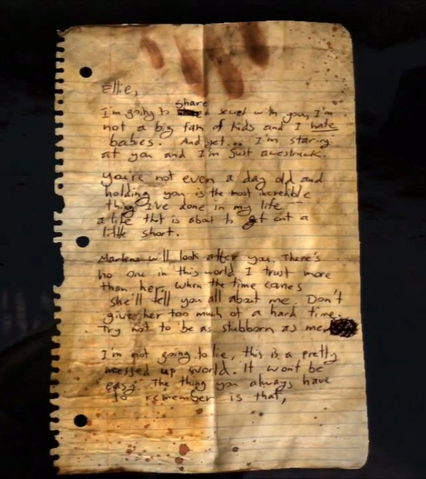 Ellie,
share
I'm going to a secret with you, I'm
not a big fan of kids and I hate
babies. And yet... I'm staring
at you and I'm just awestruck.
You're not even a day old and
holding you is the most incredible
thing I've done in my life -
a life that is about to get cut a
little short.
Marlene will look after you. There's
no one in this world I trust more
than her. When the time comes
she'll tell you all about me. Don't
give her too much of a hard time.
Try not to be as stubborn as me.
I'm not going to lie, this is a pretty
messed up world. It wont be
easy. The thing you always have
to remember is that,